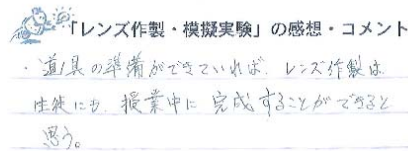 「レンズ作製・模擬実験」の感想・コメント
・道具の準備ができていれば、レンズ作製は
生徒にも、授業中に完成することができると
思う。